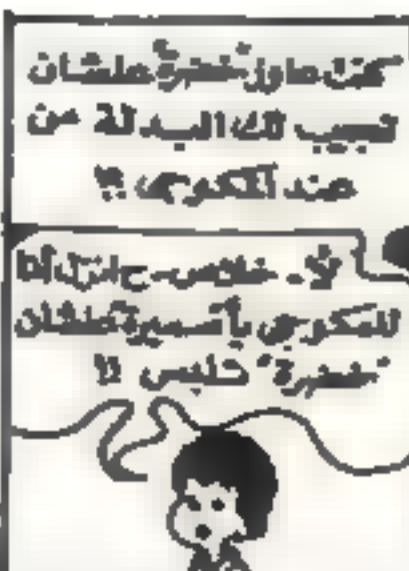 كنت عاوز "خضرة" علشان
تجيب لك البدلة من
عند المكوجى ؟!
لأ.. خلاص.. ح انزل أنا
للمكوجى يا سميرة علشان
"خضرة" حتلبس !!